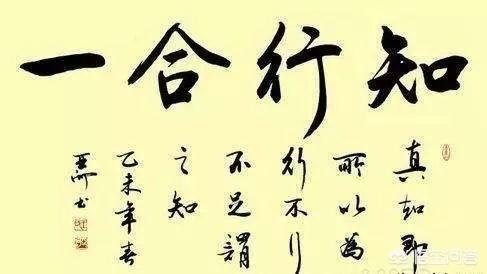 知行合一
真知即
所以為
行不行
不足謂
之知
乙未年春
亚洲书
悟空问答